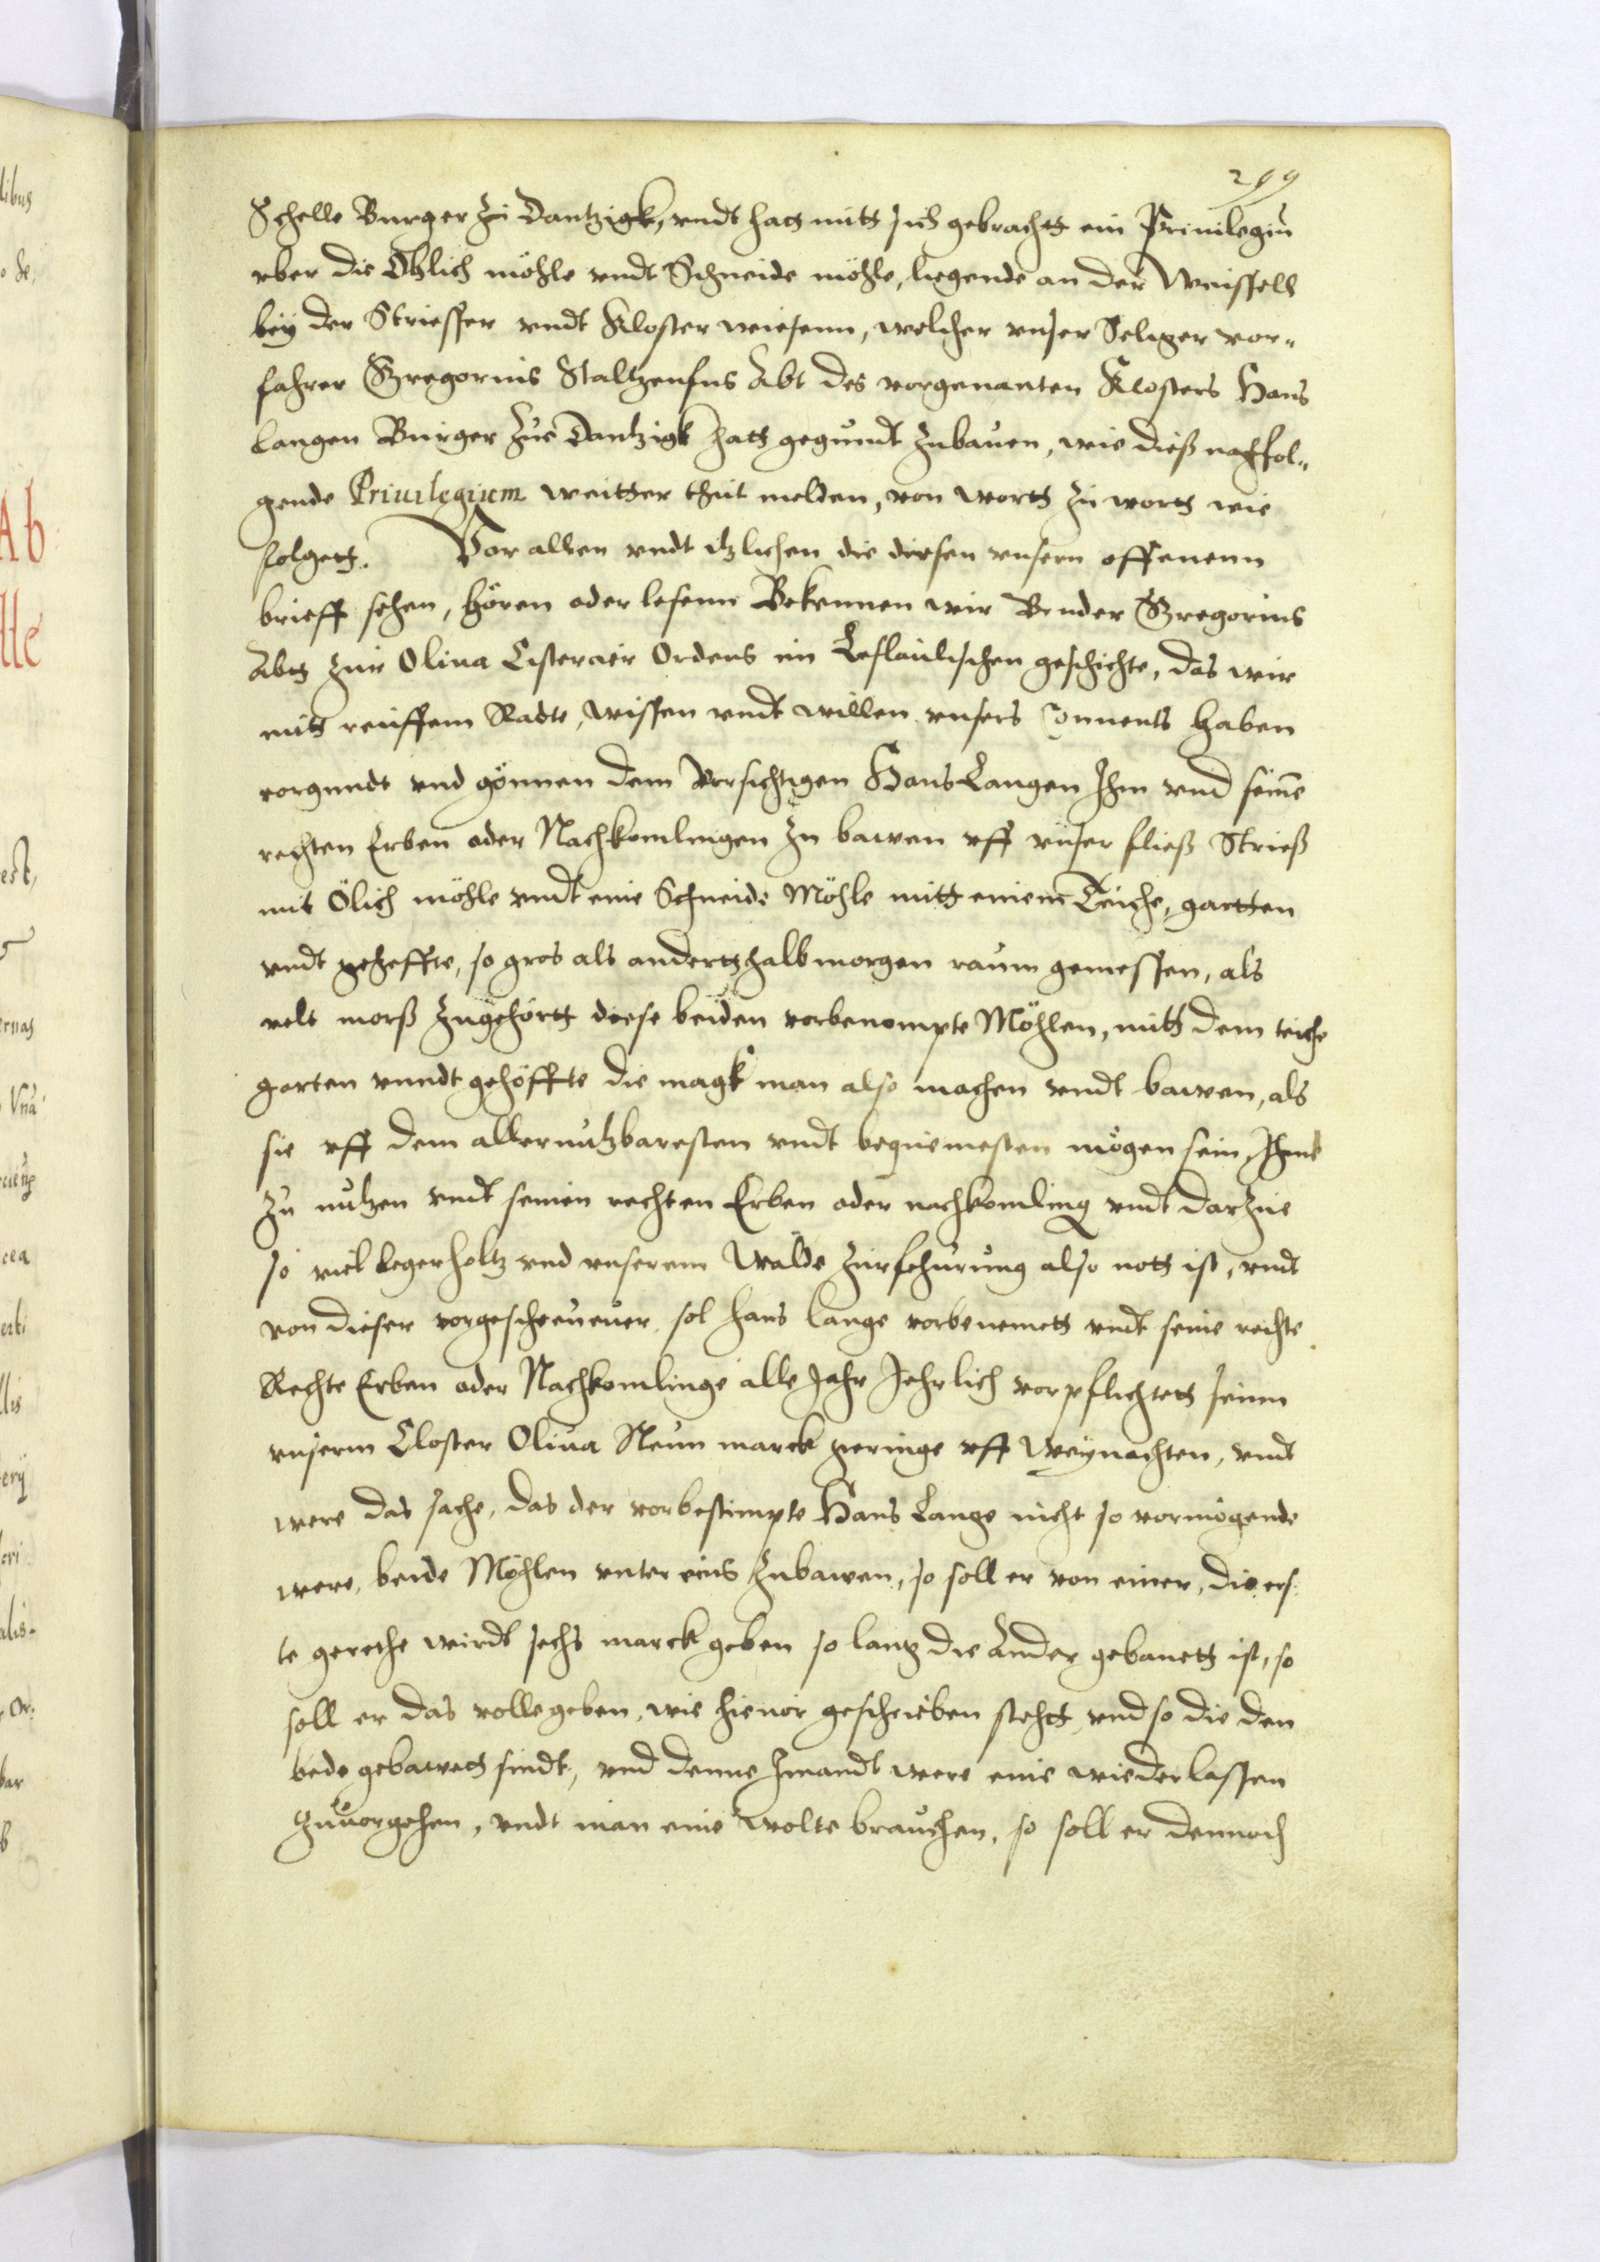 299
Schelle Burger zu Dantzigk, vndt hatt mitt sich gebrachtt ein Priuilegiu
vber die Öhlich möhle vndt Schneide möhle, liegende an der Weissell
bey der Striesser vndt Kloster wiesenn, welcher vnser Seliger vor-
fahrer Gregorius Staltzenfus Abt des vorgenanten Klosters Hans
langen Burger zue Dantzigk hatt gegundt zubauen, wie dieß nachfol-
gende Priuilegium weitter thut melden, von wortt zu wortt wie
folgett. Vor allen vndt itzlichen die diesen vnsern offenenn
brieff sehen, hören oder lesenn Bekennen wir Bruder Gregorius
Abtt zur Oliua Cistercier Ordens im Leslauischen geschichte, das wir
mitt reuffem Radte, wissen vndt willen vnsers Conuents haben
vorgundt vnd gönnen dem Vorsichtigen Hans Langen Ihm vnd seine
rechten Erben oder Nachkomlingen zu bawen vff vnser fließ Strieß
mit Ölich möhle vndt eine Schneide Möhle mitt einem Teiche, gartten
vndt geheffte, so gros als anderthalb morgen raum gemessen, als
velt morß zugehörtt diese beiden vorbenompte Möhlen, mitt dem teiche
garten vnndt gehöffte die magk man also machen vndt bawen, als
sie vff dem allernutzbaresten vndt bequemesten mögen sein, Ihme
zu nutzen vndt seinen rechten Erben oder nachkomling vndt darzue
so viel legerholtz vnd vnserem Walde zur fehurung also nott ist, vndt
von dieser vorgeschreuener sol hans lange vorbenemett vndt seine rechte
Rechte Erben oder Nachkomlinge alle Jahr Jehrlich vorpflichtett seinn
vnserm Closter Oliua Neun marck geringe vff Weynachten, vndt
were das sache, das der vorbestimpte Hans Lange nicht so vormögende
were, beide Möhlen vnter eins zubawen, so soll er von einer, die ers-
te gerethe wirdt sechs marck geben so lang die Ander gebauett ist, so
soll er das volle geben, wie hieuor geschrieben stehtt vnd so die den
bede gebawett sindt, vnd denne Jmandt were eine wiederlassen
zuuorgehen, vndt man eine wolte brauchen, so soll er dennoch